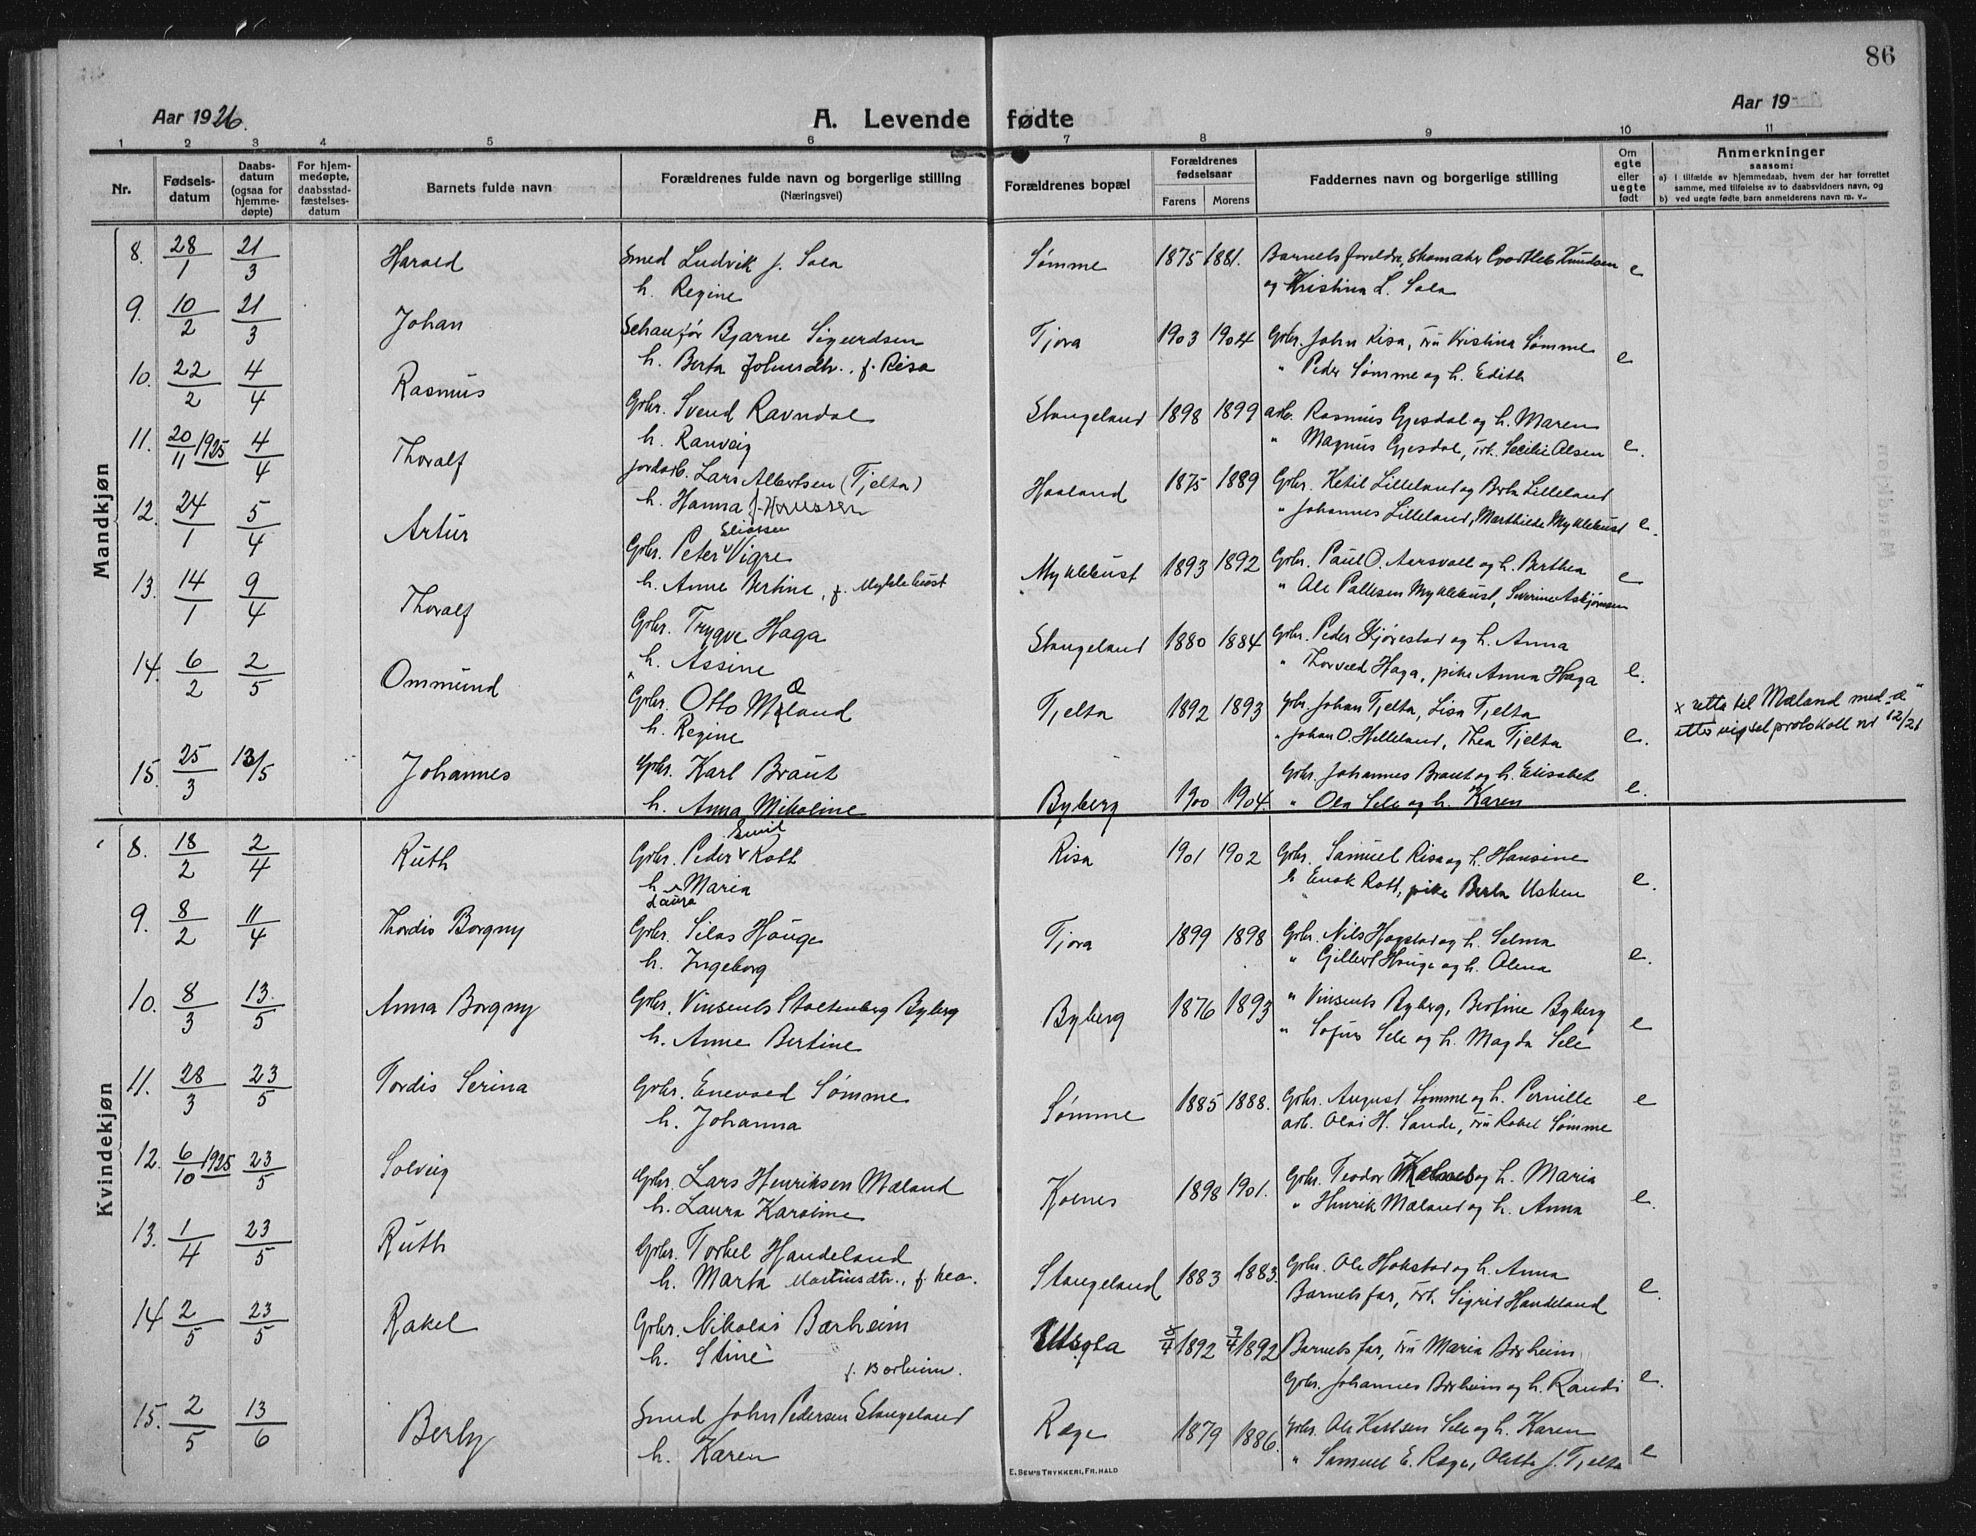 86
Aar 1926. A. Levende fødte Aar 19
1 2 3 4 5 6 7 8 9 10 11
Nr. Fødsels-datum Daabs-datum (ogsaa for hjemme-døpte) For hjem-medøpte, daabsstad-fæstelses-datum Barnets fulde navn Forældrenes fulde navn og borgerlige stilling (Næringsvei) Forældrenes bopæl Forældrenes fødselsaar Farens Morens Faddernes navn og borgerlige stilling Om egte eller uegte født Anmerkninger saasom:
a) i tilfælde av hjemmedaab, hvem der har forrettet samme, med tilføielse av to daabsvidners navn, og
b) ved uegte fødte barn anmelderens navn m. v.
Mandkjøn
8. 28/1 21/3 Harald Smed Ludvik J. Sola Sømme 1875 1881. Barnets foreldre, Knudsen e
h. Regine og Kristina L. Sola
9. 10/2 21/3 Johan Schaufør Bjarne Sigurdsen Tjora 1903 1904 Gbr. John Risa, fru Kristina Sømme e
h. Berta Johnsdtr., f. Risa " Peder Sømme og h. Edith
10. 22/2 4/4 Rasmus Gbr. Svend Ravndal Stangeland 1898 1899 arb. Rasmus Gjesdal og h. Maren
h. Ranveig " Magnus Gjesdal, frk. Secilie Olsen e.
11. 20/11 1925 4/4 Thoralf jordarb. Lars Albertsen (Tjelta) Haaland 1875 1889 Gbr. Ketil Lilleland og Berta Lilleland
h. Hanna f. " Johannes Lilleland, Marthilde Myklebust e.
12. 24/1 5/4 Artur Gbr. Peter Eliassen Vigre Myklebust 1893 1892 Gbr. Paul O. Aarsvoll og h. Berthea e
h. Anne Bertine, f. Myklebust " Ole Pallesen Myklebust, Severine Asbjørnsen
13. 14/1 9/4 Thoralf Gbr. Trygve Haga Stangeland 1880 1884 Gbr. Peder Skjørestad og h. Anna
h. Assine " Thorvald Haga, pike Anna Haga e.
14. 6/2 2/5 Ommund Gbr. Otto Mæland Tjelta 1892 1893 Gbr. Johan Tjelta, Lisa Tjelta x rettet til Mæland med "æ"
h. Regine " Johan O. Helleland, Thea Tjelta e. etter vigselprotokoll nr 12/21
15. 25/3 13/5 Johannes Gbr. Karl Braut Byberg 1900 1904. Gbr. Johannes Braut og h. Elisabet e.
h. Anna Nikoline " Ola Sele og h. Karen
Kvindekjøn
8. 18/2 2/4 Ruth Gbr. Peder Emil Rott Risa 1901 1902 Gbr. Samuel Risa og h. Hansine
h. Laura Maria " Enok Rott, pike Berta Usken e.
9. 8/2 11/4 Thordis Borgny Gbr. Silas Hauge Tjora 1899 1898 Gbr. Nils Hogstad og h. Selma
h. Ingeborg " Gillert Hauge og h. Olena e.
10. 8/3 13/5 Anna Borgny Gbr. Vinsents Stoltenberg Byberg Byberg 1876 1893 " Vinsents Byberg, Bertine Byberg
h. Anne Bertine " Sofus Sele og h. Magda Sele e
11. 28/3 23/5 Tordis Serina Gbr. Enevald Sømme Sømme 1885 1888. Gbr. August Sømme og h. Pernille e
h. Johanna arb. Olai H. Sande, fru Rakel Sømme
12. 6/10 1925 23/5 Solveig Gbr. Lars Henriksen Mæland Kolnes 1898 1901. Gbr. Teodor Kolnes og h. Maria
h. Laura Karoline " Henrik Mæland og h. Anna e.
13. 1/4 23/5 Ruth Gbr. Torkel Handeland Stangeland 1883 1883. Gbr. Ole Hokstad og h. Anna
h. Marta Martinsdtr., f. Barnets far, frk. Sigrid Handeland e.
14 2/5 23/5 Rakel Gbr. Nikolai Bærheim Utsola 5/4 1892 7/4 1892 Barnets far, fru Maria Bærheim
h. Stine f. Borheim. Gbr. Johannes Bærheim og h. Randi e.
15. 2/5 13/6 Berly Smed John Pedersen Stangeland Ræge 1879 1886. Gbr. Ole Karlsen Sele og h. Karen
h. Karen " Samuel E. Ræge, Olette J. Tjelta e
E. SEM'S TRYKKERI, FR.HALD